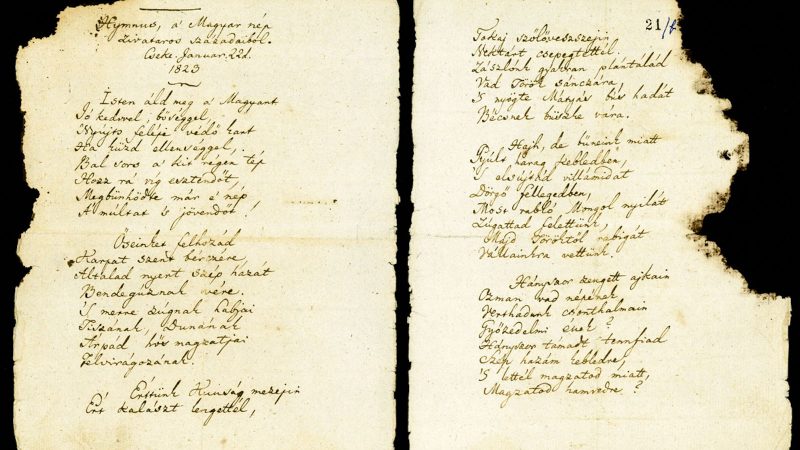 Hymnus, a' Magyar nép
zivataros századaiból.
Cseke. Januar. 22d.
1823
Isten áld meg a' Magyart
Jó kedvvel, bőséggel,
Nyújts feléje védő kart
Ha küzd ellenséggel,
Bal sors a' kit régen tép
Hozz rá víg esztendőt,
Megbűnhődte már e' nép
A' múltat 's jövendőt!
Őseinket felhozád
Karpat szent bérczére,
Általad nyert szép hazát
Bendegúznak vére.
'S merre zúgnak habjai
Tiszának, Dunának
Árpád hős magzatjai
Felvirágozának.
Értünk Kunság mezején
Ért kalászt lengettél,
21/b
Tokaj szőlővesszein
Nektárt csepegtettél.
Zászlónk gyakran plántálád
Vad Török sánczára,
'S nyögte Mátyás bús hadát
Bécsnek büszke vára.
Hajh, de bűneink miatt
Gyúlt harag kebledben,
'S elsújtád villámidat
Dörgő fellegedben,
Most rabló Mongol nyilát
Zúgattad felettünk,
Majd Töröktől rabigát
Vállainkra vettünk.
Hányszor zengett ajkain
Ozman vad népének
Vert hadunk csonthalmain
Győzedelmi ének?
Hányszor támadt tennfiad
Szép hazám kebledre,
'S lettél magzatod miatt,
Magzatod hamvedre?